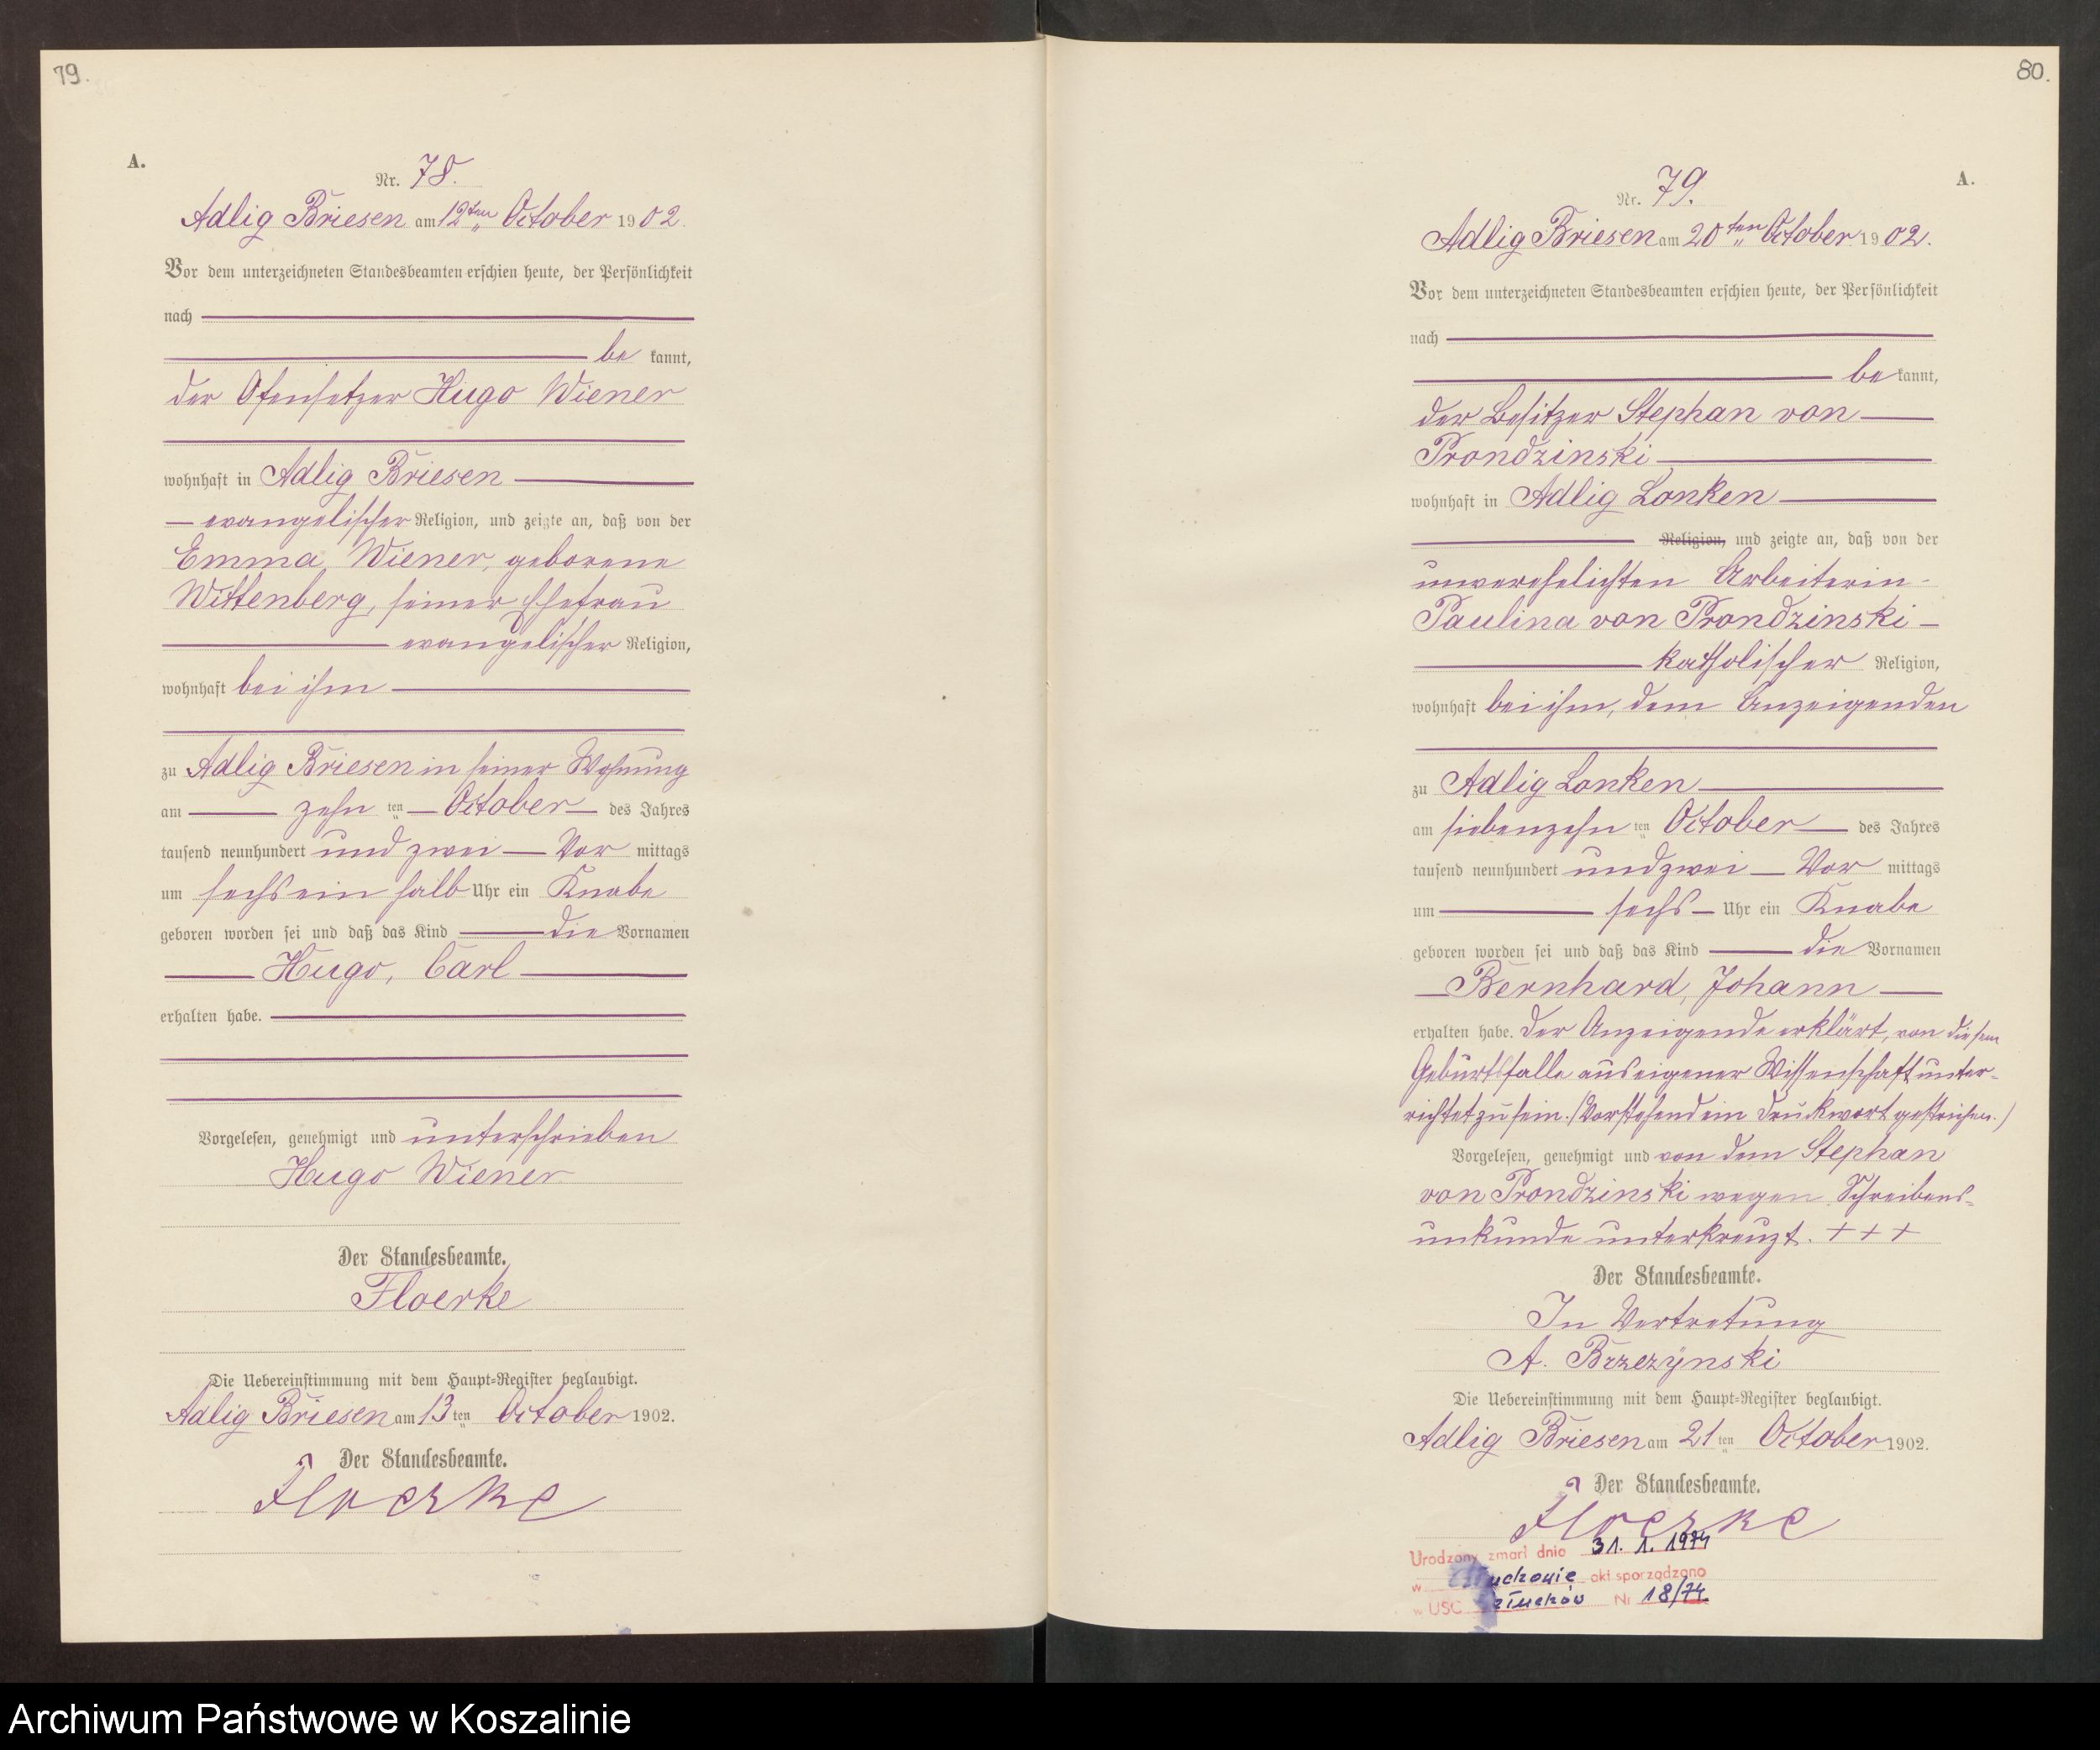 79.
A.
Nr. 78.
Adlig Briesen am 12ten October 1902.
Vor dem unterzeichneten Standesbeamten erschien heute, der Persönlichkeit
nach
be kannt,
der Ofensetzer Hugo Wiener
wohnhaft in Adlig Briesen
evangelischer Religion, und zeigte an, daß von der
Emma Wiener, geborene
Wittenberg, seiner Ehefrau
evangelischer Religion,
wohnhaft bei ihm
zu Adlig Briesen in seiner Wohnung
am zehn ten October des Jahres
tausend neunhundert und zwei Vor mittags
um sechs ein halb Uhr ein Knabe
geboren worden sei und daß das Kind die Vornamen
Hugo, Carl
erhalten habe.
Vorgelesen, genehmigt und unterschrieben
Hugo Wiener
Der Standesbeamte.
Floerke
Die Uebereinstimmung mit dem Haupt-Register beglaubigt.
Adlig Briesen am 13 ten October 1902.
Der Standesbeamte.
Floerke
80.
A.
Nr. 79.
Adlig Briesen am 20ten October 1902.
Vor dem unterzeichneten Standesbeamten erschien heute, der Persönlichkeit
nach
be kannt,
der Besitzer Stephan von
Prondzinski
wohnhaft in Adlig Lonken
Religion, und zeigte an, daß von der
unverehelichten Arbeiterin
Paulina von Prondzinski
katholischer Religion,
wohnhaft bei ihm, dem Anzeigenden
zu Adlig Lonken
am siebenzehn ten October des Jahres
tausend neunhundert und zwei Vor mittags
um sechs Uhr ein Knabe
geboren worden sei und daß das Kind die Vornamen
Bernhard, Johann
erhalten habe. Der Anzeigende erklärt, von diesem
Geburtsfalle aus eigener Wissenschaft unter-
richtet zu sein. (Vorstehend ein Druckwort gestrichen.)
Vorgelesen, genehmigt und von dem Stephan
von Prondzinski wegen Schreibens-
unkunde unterkreuzt. + + +
Der Standesbeamte.
In Vertretung
A. Brzezynski
Die Uebereinstimmung mit dem Haupt-Register beglaubigt.
Adlig Briesen am 21 ten October 1902.
Der Standesbeamte.
Floerke
Urodzony zmarł dnia 31. 1. 1974
w uchowie akt sporządzono
w USC Człuchów Nr 18/74
Archiwum Państwowe w Koszalinie